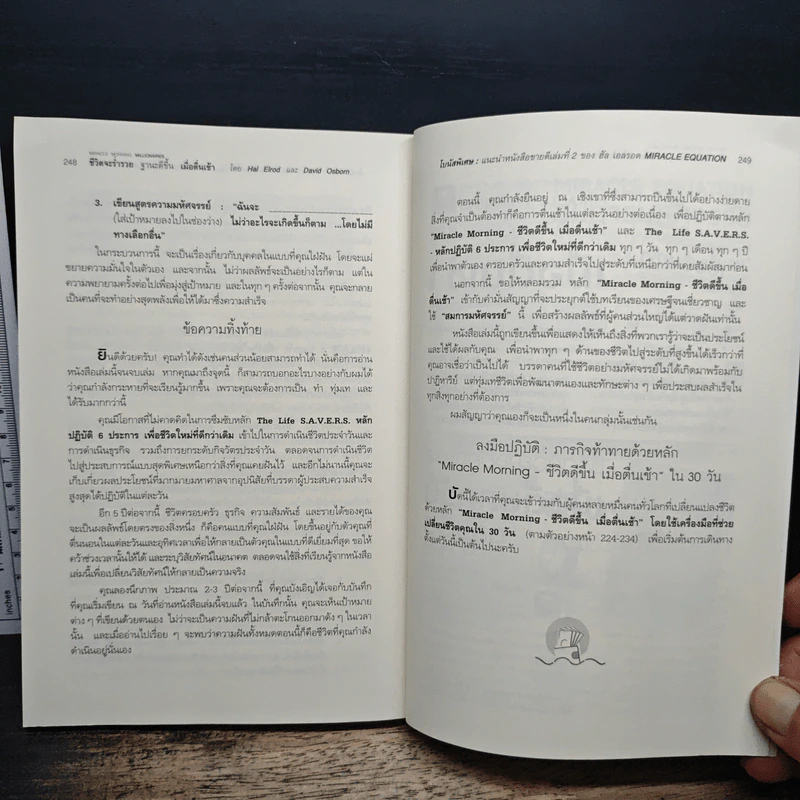 MIRACLE MORNING MILLIONAIRES
248 ชีวิตจะร่ำรวย ฐานะดีขึ้น เมื่อตื่นเช้า โดย Hal Elrod และ David Osborn
3. เขียนสูตรความมหัศจรรย์ : "ฉันจะ ____________________
(ใส่เป้าหมายลงไปในช่องว่าง) ไม่ว่าอะไรจะเกิดขึ้นก็ตาม ...โดยไม่มี
ทางเลือกอื่น"
ในกระบวนการนี้ จะเป็นเรื่องเกี่ยวกับบุคคลในแบบที่คุณใฝ่ฝัน โดยจะแผ่
ขยายความมั่นใจในตัวเอง และจากนั้น ไม่ว่าผลลัพธ์จะเป็นอย่างไรก็ตาม แต่ใน
ความพยายามครั้งต่อไปเพื่อมุ่งสู่เป้าหมาย และในทุก ๆ ครั้งต่อจากนั้น คุณจะกลาย
เป็นคนที่จะทำอย่างสุดพลังเพื่อให้ได้มาซึ่งความสำเร็จ
ข้อความทิ้งท้าย
ยินดีด้วยครับ! คุณทำได้ดังเช่นคนส่วนน้อยสามารถทำได้ นั่นคือการอ่าน
หนังสือเล่มนี้จนจบเล่ม หากคุณมาถึงจุดนี้ ก็สามารถบอกอะไรบางอย่างกับผมได้
ว่าคุณกำลังกระหายที่จะเรียนรู้มากขึ้น เพราะคุณจะต้องการเป็น ทำ ทุ่มเท และ
ได้รับมากกว่านี้
คุณมีโอกาสที่ไม่คาดคิดในการซึมซับหลัก The Life S.A.V.E.R.S. หลัก
ปฏิบัติ 6 ประการ เพื่อชีวิตใหม่ที่ดีกว่าเดิม เข้าไปในการดำเนินชีวิตประจำวันและ
การดำเนินธุรกิจ รวมถึงการยกระดับกิจวัตรประจำวัน ตลอดจนการดำเนินชีวิต
ไปสู่ประสบการณ์แบบสุดพิเศษเหนือกว่าสิ่งที่คุณเคยฝันไว้ และอีกไม่นานนี้คุณจะ
เก็บเกี่ยวผลประโยชน์ที่มากมายมหาศาลจากอุปนิสัยที่บรรดาผู้ประสบความสำเร็จ
สูงสุดได้ปฏิบัติในแต่ละวัน
อีก 5 ปีต่อจากนี้ ชีวิตครอบครัว ธุรกิจ ความสัมพันธ์ และรายได้ของคุณ
จะเป็นผลลัพธ์โดยตรงของสิ่งหนึ่ง ก็คือคนแบบที่คุณใฝ่ฝัน โดยขึ้นอยู่กับตัวคุณที่
ตื่นนอนในแต่ละวันและอุทิศเวลาเพื่อให้กลายเป็นตัวคุณในแบบที่ดีเยี่ยมที่สุด ขอให้
คว้าช่วงเวลานั้นให้ได้ และระบุวิสัยทัศน์ในอนาคต ตลอดจนใช้สิ่งที่เรียนรู้จากหนังสือ
เล่มนี้เพื่อเปลี่ยนวิสัยทัศน์ให้กลายเป็นความจริง
คุณลองนึกภาพ ประมาณ 2-3 ปีต่อจากนี้ ที่คุณบังเอิญได้เจอกับบันทึก
ที่คุณเริ่มเขียน ณ วันที่อ่านหนังสือเล่มนี้จบแล้ว ในบันทึกนั้น คุณจะเห็นเป้าหมาย
ต่าง ๆ ที่เขียนด้วยตนเอง ไม่ว่าจะเป็นความฝันที่ไม่กล้าตะโกนออกมาดัง ๆ ในเวลา
นั้น และเมื่ออ่านไปเรื่อย ๆ จะพบว่าความฝันทั้งหมดตอนนี้ก็คือชีวิตที่คุณกำลัง
ดำเนินอยู่นั่นเอง
โบนัสพิเศษ : แนะนำหนังสือขายดีเล่มที่ 2 ของ ฮัล เอลรอด MIRACLE EQUATION 249
ตอนนี้ คุณกำลังยืนอยู่ ณ เชิงเขาที่ซึ่งสามารถปีนขึ้นไปได้อย่างง่ายดาย
สิ่งที่คุณจำเป็นต้องทำก็คือการตื่นเช้าในแต่ละวันอย่างต่อเนื่อง เพื่อปฏิบัติตามหลัก
"Miracle Morning - ชีวิตดีขึ้น เมื่อตื่นเช้า" และ The Life S.A.V.E.R.S.
- หลักปฏิบัติ 6 ประการ เพื่อชีวิตใหม่ที่ดีกว่าเดิม ทุก ๆ วัน ทุก ๆ เดือน ทุก ๆ ปี
เพื่อนำพาตัวเอง ครอบครัวและความสำเร็จไปสู่ระดับที่เหนือกว่าที่เคยสัมผัสมาก่อน
นอกจากนี้ ขอให้หลอมรวม หลัก "Miracle Morning - ชีวิตดีขึ้น เมื่อ
ตื่นเช้า" เข้ากับคำมั่นสัญญาที่จะประยุกต์ใช้บทเรียนของเศรษฐีจนเชี่ยวชาญ และ
ใช้ "สมการมหัศจรรย์" นี้ เพื่อสร้างผลลัพธ์ที่ผู้คนส่วนใหญ่ได้แต่วาดฝันเท่านั้น
หนังสือเล่มนี้ถูกเขียนขึ้นเพื่อแสดงให้เห็นถึงสิ่งที่พวกเรารู้ว่าจะเป็นประโยชน์
และใช้ได้ผลกับคุณ เพื่อนำพาทุก ๆ ด้านของชีวิตไปสู่ระดับที่สูงขึ้นได้เร็วกว่าที่
คุณอาจเชื่อว่าเป็นไปได้ บรรดาคนที่ใช้ชีวิตอย่างมหัศจรรย์ไม่ได้เกิดมาพร้อมกับ
ปาฏิหาริย์ แต่ทุ่มเทชีวิตเพื่อพัฒนาตนเองและทักษะต่าง ๆ เพื่อประสบผลสำเร็จใน
ทุกสิ่งทุกอย่างที่ต้องการ
ผมสัญญาว่าคุณเองก็จะเป็นหนึ่งในคนกลุ่มนั้นเช่นกัน
ลงมือปฏิบัติ : ภารกิจท้าทายด้วยหลัก
"Miracle Morning – ชีวิตดีขึ้น เมื่อตื่นเช้า" ใน 30 วัน
บัดนี้ได้เวลาที่คุณจะเข้าร่วมกับผู้คนหลายหมื่นคนทั่วโลกที่เปลี่ยนแปลงชีวิต
ด้วยหลัก "Miracle Morning - ชีวิตดีขึ้น เมื่อตื่นเช้า" โดยใช้เครื่องมือที่ช่วย
เปลี่ยนชีวิตคุณใน 30 วัน (ตามตัวอย่างหน้า 224-234) เพื่อเริ่มต้นการเดินทาง
ตั้งแต่วันนี้เป็นต้นไปนะครับ
inches